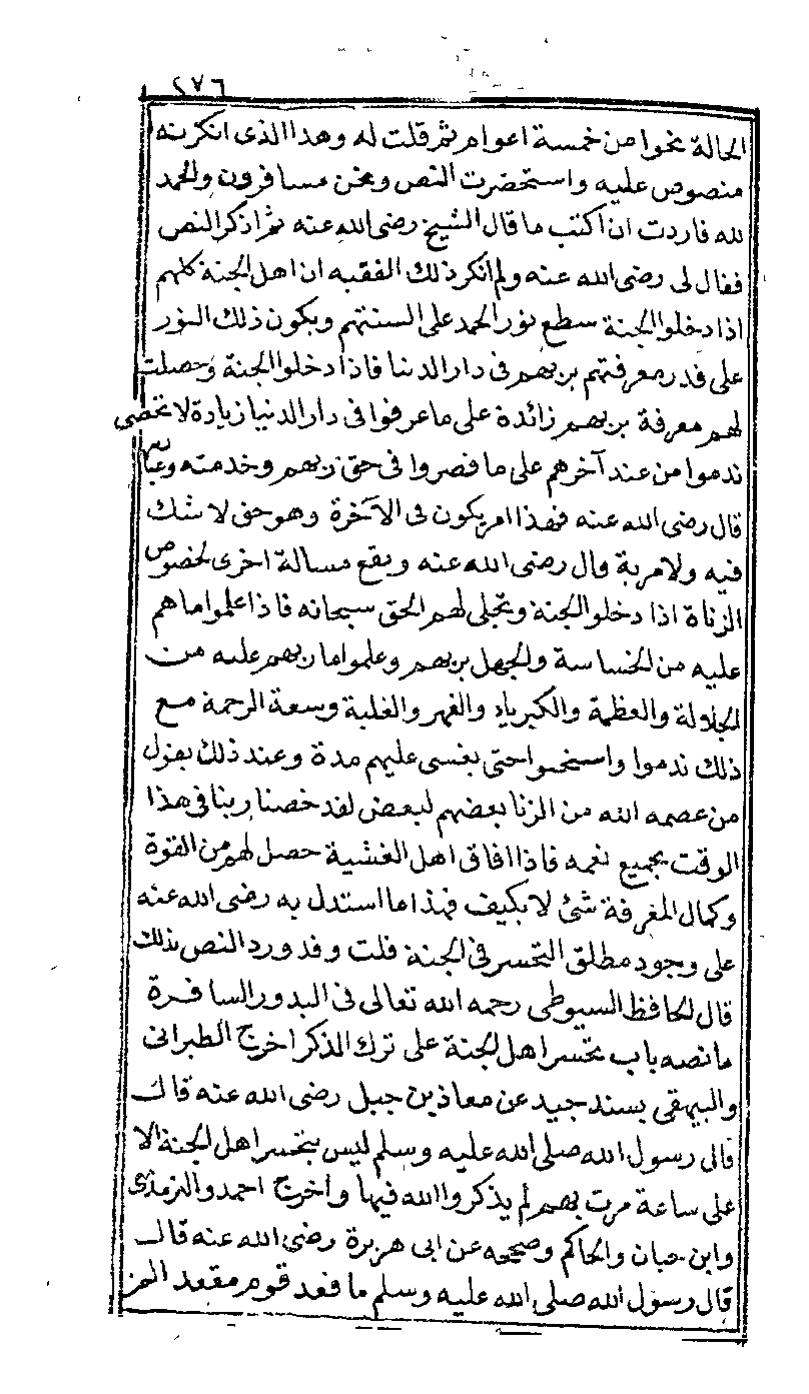 ٢٧٦
الحالة نحوا من خمسة اعوام ثم قلت له وهذا الذى انكرته
منصوص عليه واستحضرت النص ونحن مسافرون والحمد
لله فاردت ان اكتب ما قال الشيخ رضى الله عنه ثم اذكر النص
فقال لى رضى الله عنه ولم انكر ذلك الفقيه ان اهل الجنة كلهم
اذا دخلوا الجنة سطع نور الحمد على السنتهم ويكون ذلك النور
على قدر معرفتهم بربهم فى دار الدنيا فاذا دخلوا الجنة وحصلت
لهم معرفة بربهم زائدة على ما عرفوا فى دار الدنيا زيادة لا تحصى
ندموا من عند آخرهم على ما قصروا فى حق ربهم وخدمته وعبادته
قال رضى الله عنه فهذا امر يكون فى الآخرة وهو حق لا شك
فيه ولا مرية قال رضى الله عنه ويقع مسالة اخرى لخصوص
الزناة اذا دخلوا الجنة وتجلى لهم الحق سبحانه فاذا علموا ما هم
عليه من الخساسة والجهل بربهم وعلموا ما ربهم عليه من
الجلالة والعظمة والكبرياء والقهر والغلبة وسعة الرحمة مع
ذلك ندموا واستحيوا حتى يغشى عليهم مدة وعند ذلك يقول
من عصمه الله من الزنا بعضهم لبعض لقد خصنا ربنا فى هذا
الوقت بجميع نعمه فاذا افاق اهل الغشية حصل لهم من القوة
وكمال المعرفة شئ لا يكيف فهذا ما استدل به رضى الله عنه
على وجود مطلق التحسر فى الجنة قلت وقد ورد النص بذلك
قال الحافظ السيوطى رحمه الله تعالى فى البدور السافرة
ما نصه باب تحسر اهل الجنة على ترك الذكر اخرج الطبرانى
والبيهقى بسند جيد عن معاذ بن جبل رضى الله عنه قال
قال رسول الله صلى الله عليه وسلم ليس يتحسر اهل الجنة الا
على ساعة مرت بهم لم يذكروا الله فيها واخرج احمد والترمذى
وابن حبان والحاكم وصححه عن ابى هريرة رضى الله عنه قال
قال رسول الله صلى الله عليه وسلم ما قعد قوم مقعد الم